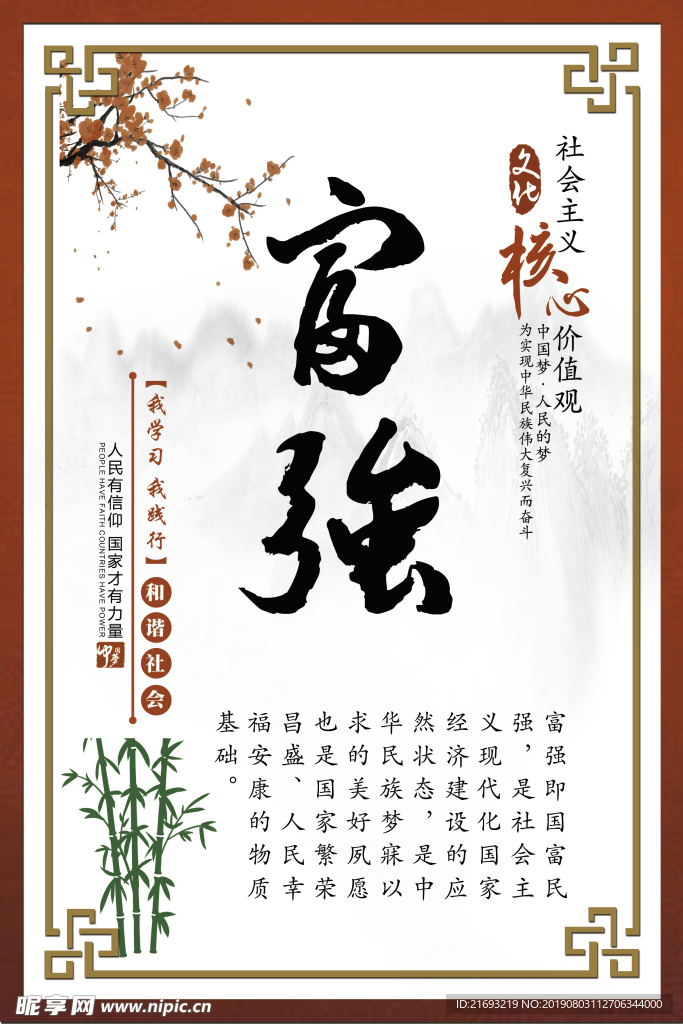 社会主义
文化
核心
价值观
中国梦·人民的梦
为实现中华民族伟大复兴而奋斗
富强
【我学习 我践行】
和谐社会
人民有信仰 国家才有力量
PEOPLE HAVE FAITH COUNTRIES HAVE POWER
中国梦
富强即国富民
强，是社会主
义现代化国家
经济建设的应
然状态，是中
华民族梦寐以
求的美好夙愿
也是国家繁荣
昌盛、人民幸
福安康的物质
基础。
昵享网 www.nipic.cn
ID:21693219 NO:20190803112706344000